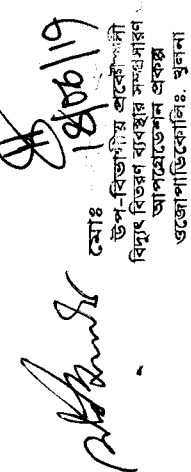 18/06/19
মোঃ
উপ-বিভাগীয় প্রকৌশলী
বিদ্যুৎ বিতরণ ব্যবস্থার সম্প্রসারণ
আপগ্রেডেশন প্রকল্প
ওজোপাডিকোলিঃ, খুলনা